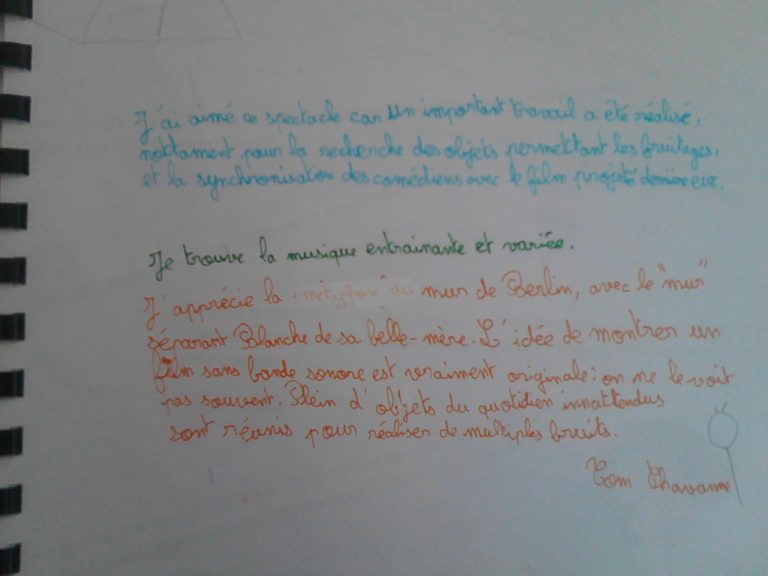 J'ai aimé ce spectacle car un important travail a été réalisé,
nottament pour la recherche des objets permettant les bruitages,
et la synchronisation des comédiens avec le film projeté derrière eux.
Je trouve la musique entrainante et variée.
J'apprécie la "métaphore" du mur de Berlin, avec le "mur"
séparant Blanche de sa belle-mère. L'idée de montrer un
film sans bande sonore est vraiment originale : on ne le voit
pas souvent. Plein d'objets du quotidien innattendus
sont réunis pour réaliser de multiples bruits.
Tom Chavanne